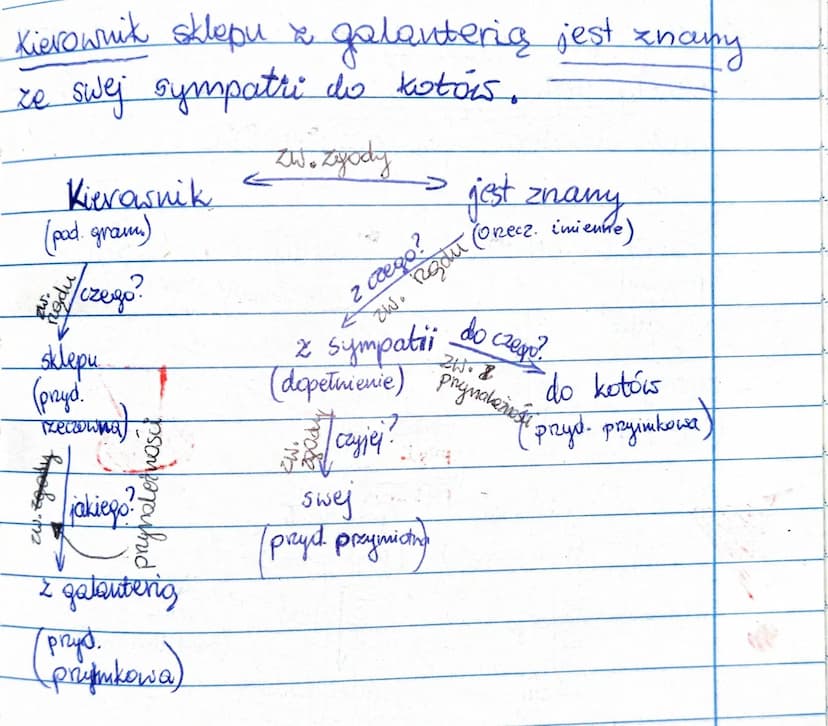 Kierownik sklepu z galanterią jest znany
ze swej sympatii do kotów.
zw. zgody
Kierownik
jest znany
(pod. gram.)
(orzecz. imienne)
zw. rządu
czego?
z czego?
zw. rządu
sklepu
(przyd.
rzeczowna)
z sympatii
(dopełnienie)
do czego?
zw.
przynależności
do kotów
(przyd. przyimkowa)
zw.
zgody
czyjej?
swej
(przyd. przymiotna)
zw. zgody
jakiego?
przynależności
z galanterią
(przyd.
przyimkowa)